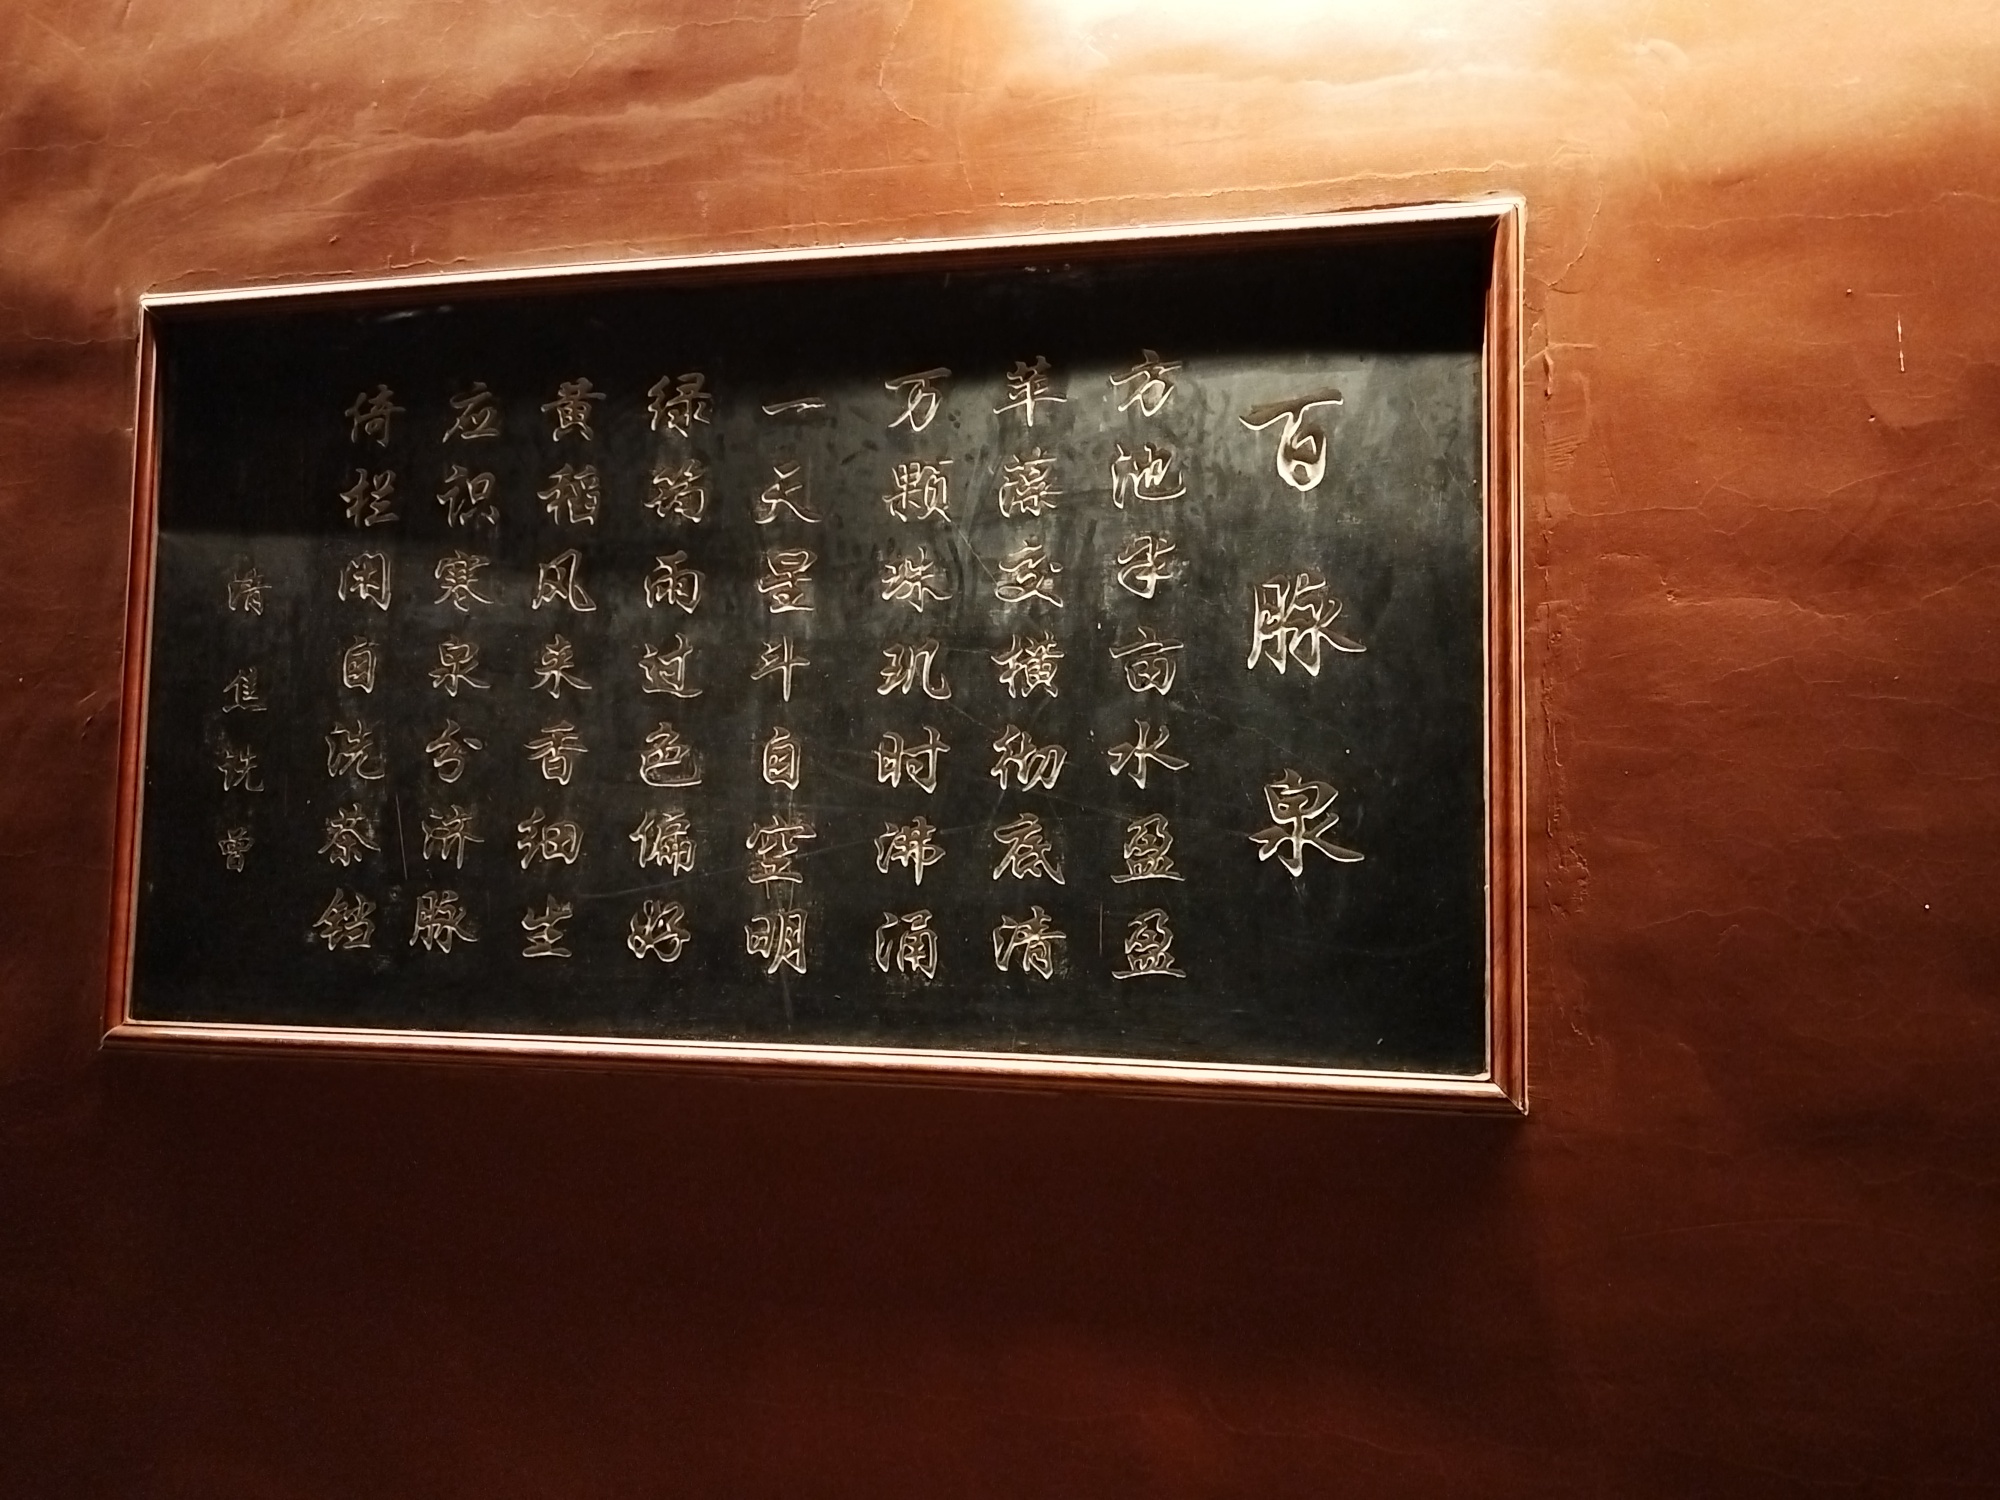 百脉泉
方池半亩水盈盈
萍藻交横彻底清
万颗珠玑时沸涌
一天星斗自空明
绿筠雨过色偏好
黄稻风来香细生
应识寒泉分济脉
倚栏闲自洗茶铛
清 焦铣曾